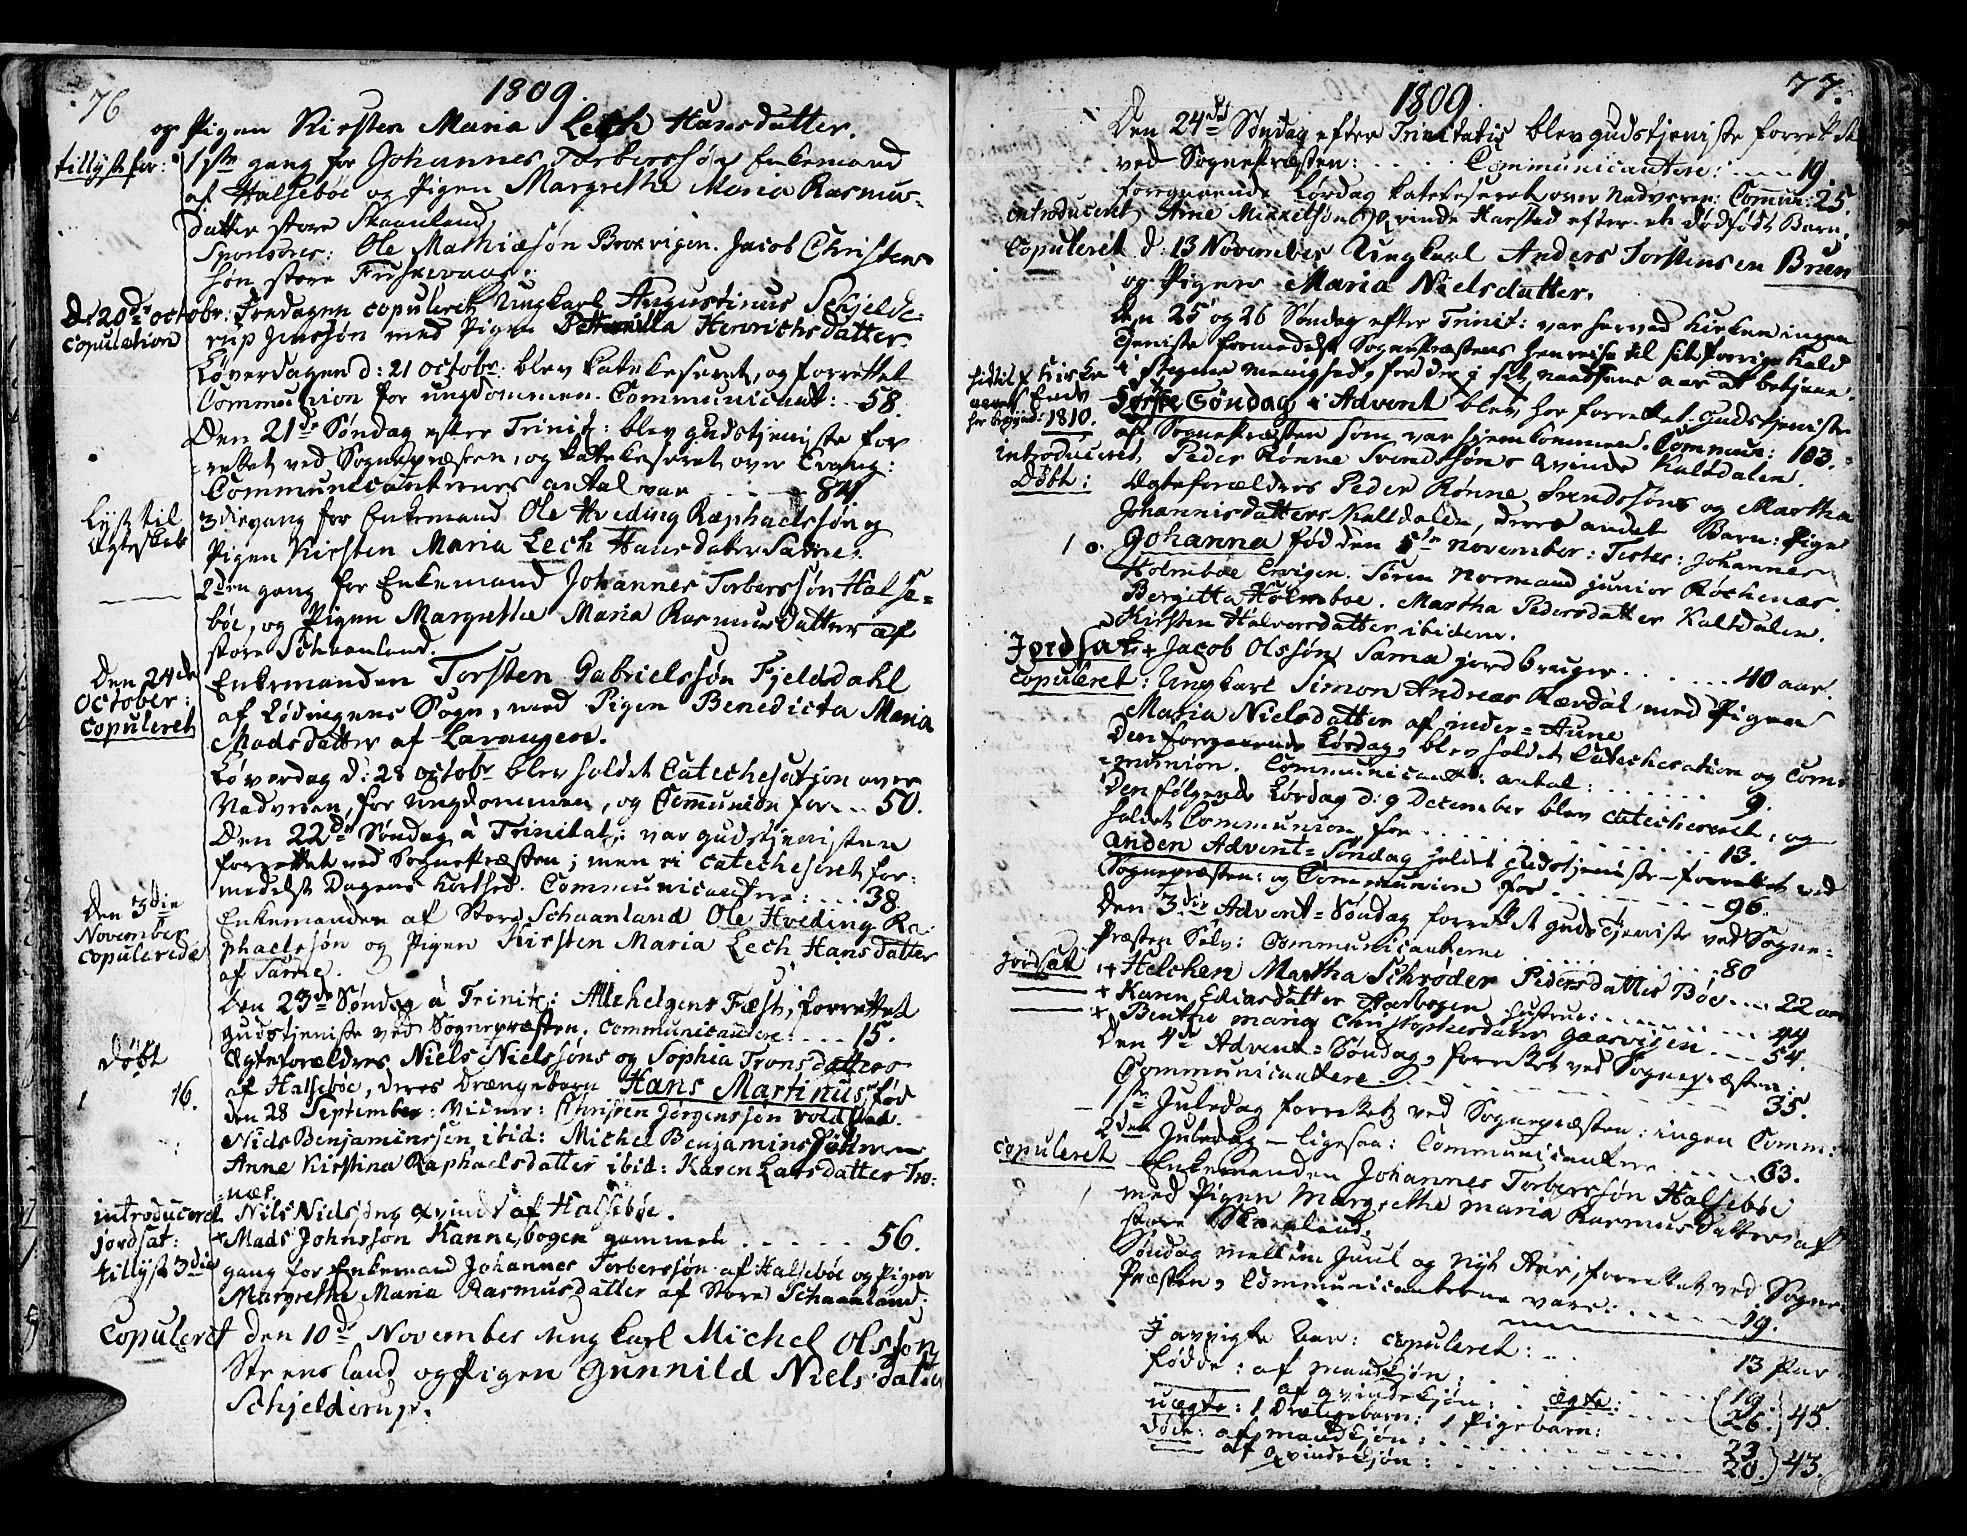 76
1809.
og Pigen Kirsten Maria Lech Hansdatter.
tillyst for: 1ste gang for Johannes Torberssøn Enkemand
af Halsebøe og Pigen Margretha Maria Rasmus-
datter store Skaanland.
Sponsorer: Ole Mathiæsøn Brokvigen. Jacob Christen-
søn store
d: 20de octobr: Fredagen copuleret Ungkarl Augustinus Schjelde-
copulation
rup Jenssøn med Pigen Petternilla Henrichsdatter
Løverdagen d: 21 octobr: blev katekeseret, og forrettet
Communion for ungdommen. Communicant: 58.
Den 21de Søndag efter Trinit: blev gudstjeniste for
rettet ved Sognepræsten, og katekeseret over Evang:
Communicanternes antal var - - - 84
Lyst til
Ægteskab
3die gang for Enkemand Ole Hveding Ræphaelssøn og
Pigen Kirsten Maria Lech Hansdatter Same.
2den gang for Enkemand Johannes Torberssøn Halse-
bøe, og Pigen Margretha Maria Rasmusdatter af
store Schaanland.
Den 24de
October:
copuleret
Enkemanden Torsten Gabrielssøn Fjelddahl
af Lødingens Sogn, med Pigen Benedicta Maria
Madsdatter af Lavangen.
Løverdag d: 28 octobr blev holdet Catechesation over
Nadveren, for ungdommen, og Communion for - - 50.
Den 22de Søndag à Trinitat: var gudstjenisten
forrettet ved Sognepræsten; men ei catecheseret for-
medelst Dagens korthed. Communicantere: - - - 38.
Den 3die
November
copulerede
Enkemanden af Store Schaanland Ole Hveding Ra-
phaelssøn og Pigen Kirsten Maria Lech Hansdatter
af Same.
Den 23de Søndag à Trinit: Allehelgens Fæst, forrettet
gudstjeniste ved Sognepræsten. Communicantere: - - - 15.
Døbt
Ægteforældres Niels Nielssøns og Sophia Tronsdatters
af Halsebøe, deres Drængebarn Hans Martinus, fød
1 16.
den 28 September: Vidner: Christen Jørgenssøn voldstad.
Niels Benjaminssøn ibid: Michel Benjamins
Anne Kirstina Raphaelsdatter ibid: Karen Larsdatter Tro-
næs.
introduceret Nils Nielsøns qvinde af Halsebøe.
jordsat: + Mads Johnssøn Kannebogen gammel - - - - 56.
tillyst 3die gang for Enkemand Johannes Torberssøn af Halsebøe og Pigen
Margretha Maria Rasmusdatter af Store Schaanland:
Copuleret den 10de November ungkarl Michel Olssøn
Steensland og Pigen Gunnild Nielsdatter
Schjelderup.
77.
1809.
Den 24de Søndag efter Trinitatis blev gudstjeniste forrettet
ved Sognepræsten: . . . . Communicantere: - - - 19.
foregaaende Lørdag katekeseret over Nadveren: Commun: 25.
introduceret, Arne Mikkelsøns Qvinde Harstad efter et dødfødt Barn.
Copuleret d: 13 November Ungkarl Anders Torstensen Bruun
og Pigen Maria Nielsdatter.
Den 25 og 26 Søndag efter Trinit: var herved kirken ingen
tjeniste formedelst Sognepræstens henreise til sit forrige kald
i menighed, for der i sit naadsens aar at betjene.
hidtil kirke
1810.
Første Søndag i Advent blev her forrettet gudstjeniste
af Sognepræsten som var hjemkommen. Commun: 103.
introduceret, Peder Rønne Svendssøns Qvinde Kaltdalen.
Døbt:
Ægteforældres Peder Rønne Svendssøns og Martha
Johannisdatters Kaltdalen, deres andet Barn: Pige
1 0.
Johanna fød den 5te November: Testes: Johannes
Holmboe Ervigen. Søren Normand junior Røchenæs.
Bergitta Holmboe. Martha Pedersdatter Kaltdalen.
Kirsten Halvorsdatter ibidem.
Jordsat + Jacob Olssøn Sama jordbruger - - - - 40 aar.
Copuleret: Ungkarl Simon Andreas Rærdal med Pigen
Maria Nielsdatter af inder-Aune
Den foregaaende Lørdag, blev holdet Catechesation og Com-
munion. Communicant: antal: - - - - 9.
Den følgende Lørdag d: 9 December blev catecheseret, og
holdet Communion for - - - - 13.
anden Advent-Søndag holdt gudstjeniste forrettet ved
Sognepræsten: og Communion for - - - - 96.
Den 3die Advent-Søndag forrettet gudstjeniste ved Sogne-
Præsten Selv: Communicanterne - - - - 80
jordsat + Helchen Martha Schrøder Pedersdatter Bøe - - 22 aar
+ Karen Eliasdatter Aarbogen hustrue: - - - - 44
+ Benthe maria Christophersdatter Gaarvigen - - - 54.
Den 4de Advent-Søndag, forrettet ved Sognepræsten:
Communicantere - - - - 35.
1ste Juledag forrettet ved Sognepræsten: ingen Comm:
2den Juledag - ligesaa: Communicantere - - - 63.
copuleret Enkemanden Johannes Torberssøn Halsebøe
med Pigen Margrethe maria Rasmusdatter af
store Skaanland.
Søndag mellem Juul og Nyt Aar, forrettet ved Sogne-
Præsten, Communicanterne vare: - - - - 19.
I avvigte Aar: copuleret: - - 13 Par
fødde: af mandkjøn: - - - - (19.
af qvindekjøn: - ægte: - - (26.) 45.
uægte: 1 Drængebarn: 1 Pigebarn:
døde: af mandkjøn: - - - - 23
af qvindekjøn: - - - - 20.) 43.